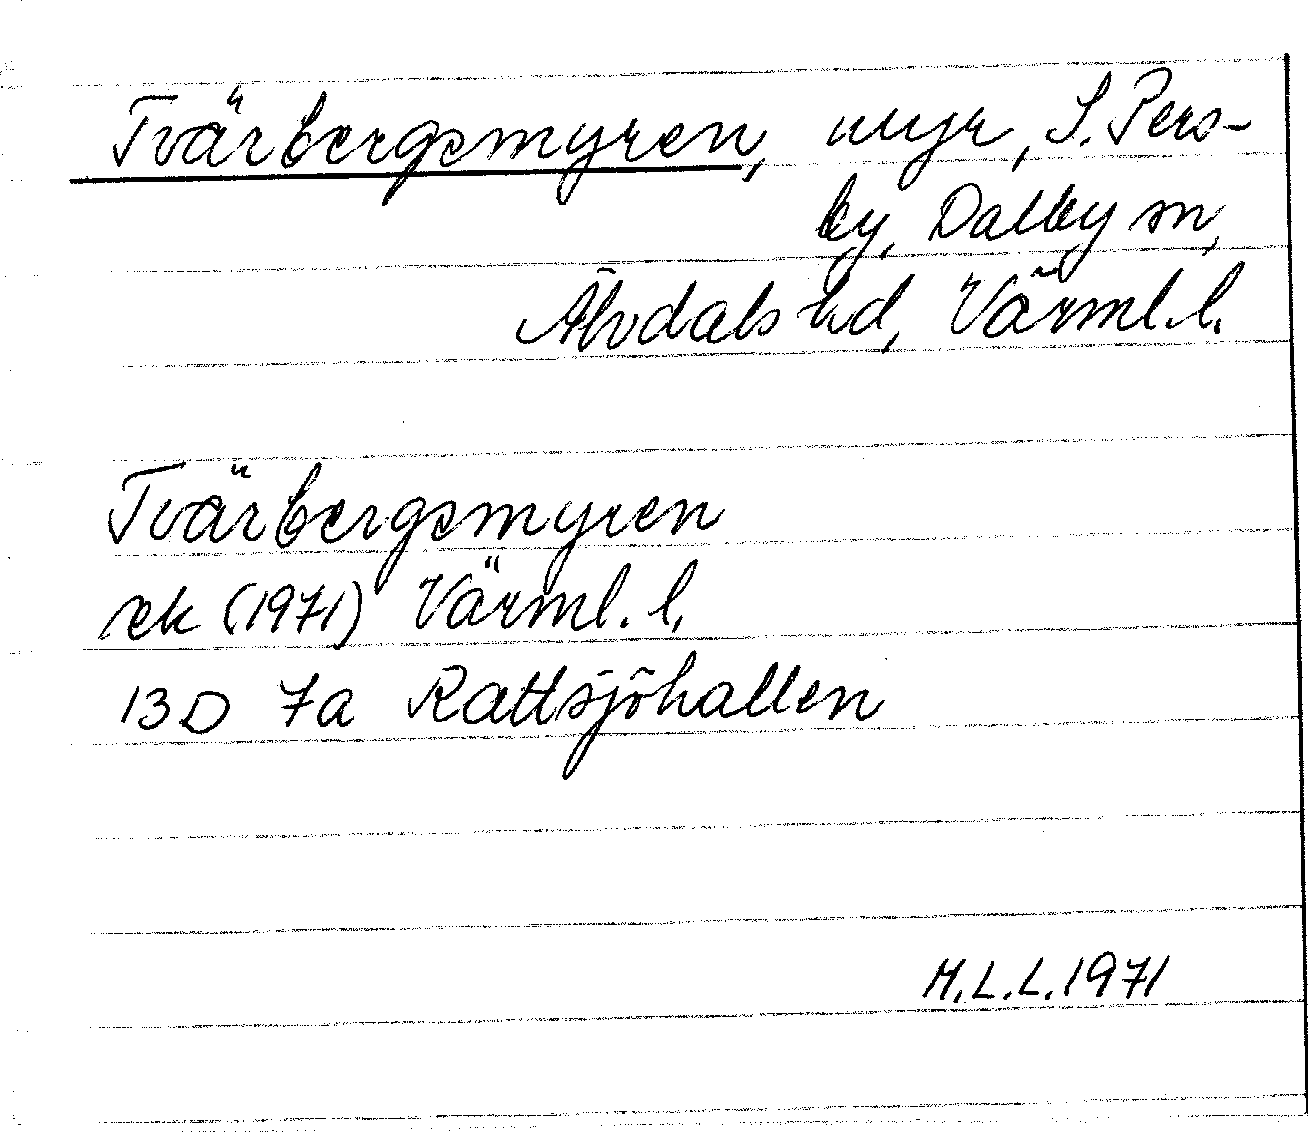 Tvärbergsmyren, myr, S. Pers-
by, Dalby sn,
Älvdals hd, Värml. l.
Tvärbergsmyren
rek (1971) Värml. l.
13D 7a Rattsjöhallen
M.L.L. 1971